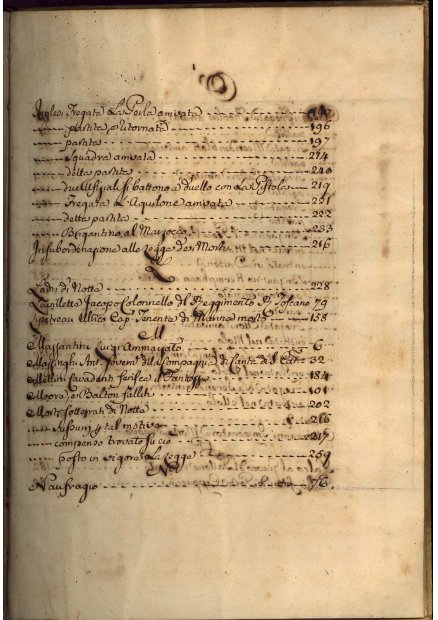 Inglesi Fregata La Perla arrivata 192
partita, e ritornata 196
partita 197
Squadra arrivata 214
detta partita 240
due Uffiziali si battono a duello con La Pistola 219
Fregata L'Aquilone arrivata 221
dette partite 222
Brigantino al Marzocco 233
Insubordinazione alla Legge de Morti 216
L
Ladri di Notte 228
Jacopo Colonnello del Reggimento Toscano 79
Cap. Tenente di Marina morto 158
M
Massantini Luigi Ammazzato 6
Ant. Giovene della Compagnia di 32
184
Moore, e Balton falliti 101
Morti sotterrati di Notte 202
tal motivo 216
compenso trovato su ciò 217
posto in vigore La Legge 259
N
Naufragio 76